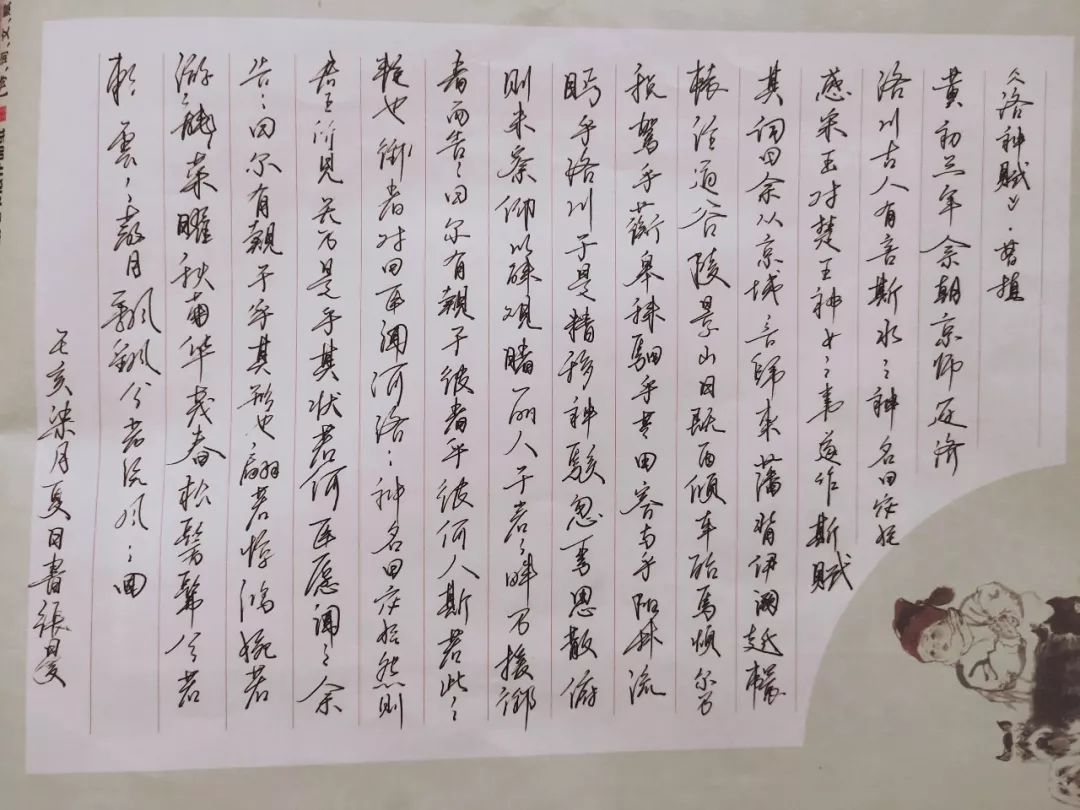 《洛神賦》·曹植
黄初三年余朝京师还济
洛川古人有言斯水之神名曰宓妃
感宋玉对楚王神女之事遂作斯賦
其词曰余从京域言歸東藩背伊阙越轘
轅经通谷陵景山日既西倾车殆马烦尔乃
税驾乎蘅皋秣駟乎芝田容与乎阳林流
眄乎洛川于是精移神駭忽焉思散俯
则未察仰以殊观睹一丽人于岩之畔乃援御
者而告之曰尔有覿于彼者乎彼何人斯若此之
艳也御者对曰臣闻河洛之神名曰宓妃然则
君王所見无乃是乎其状若何臣愿闻之余
告之曰尔有覿于乎其形也翩若惊鴻婉若
游龍荣曜秋菊华茂春松髣髴兮若
輕雲之蔽月飘飖兮若流风之回
癸亥柒月夏日書張